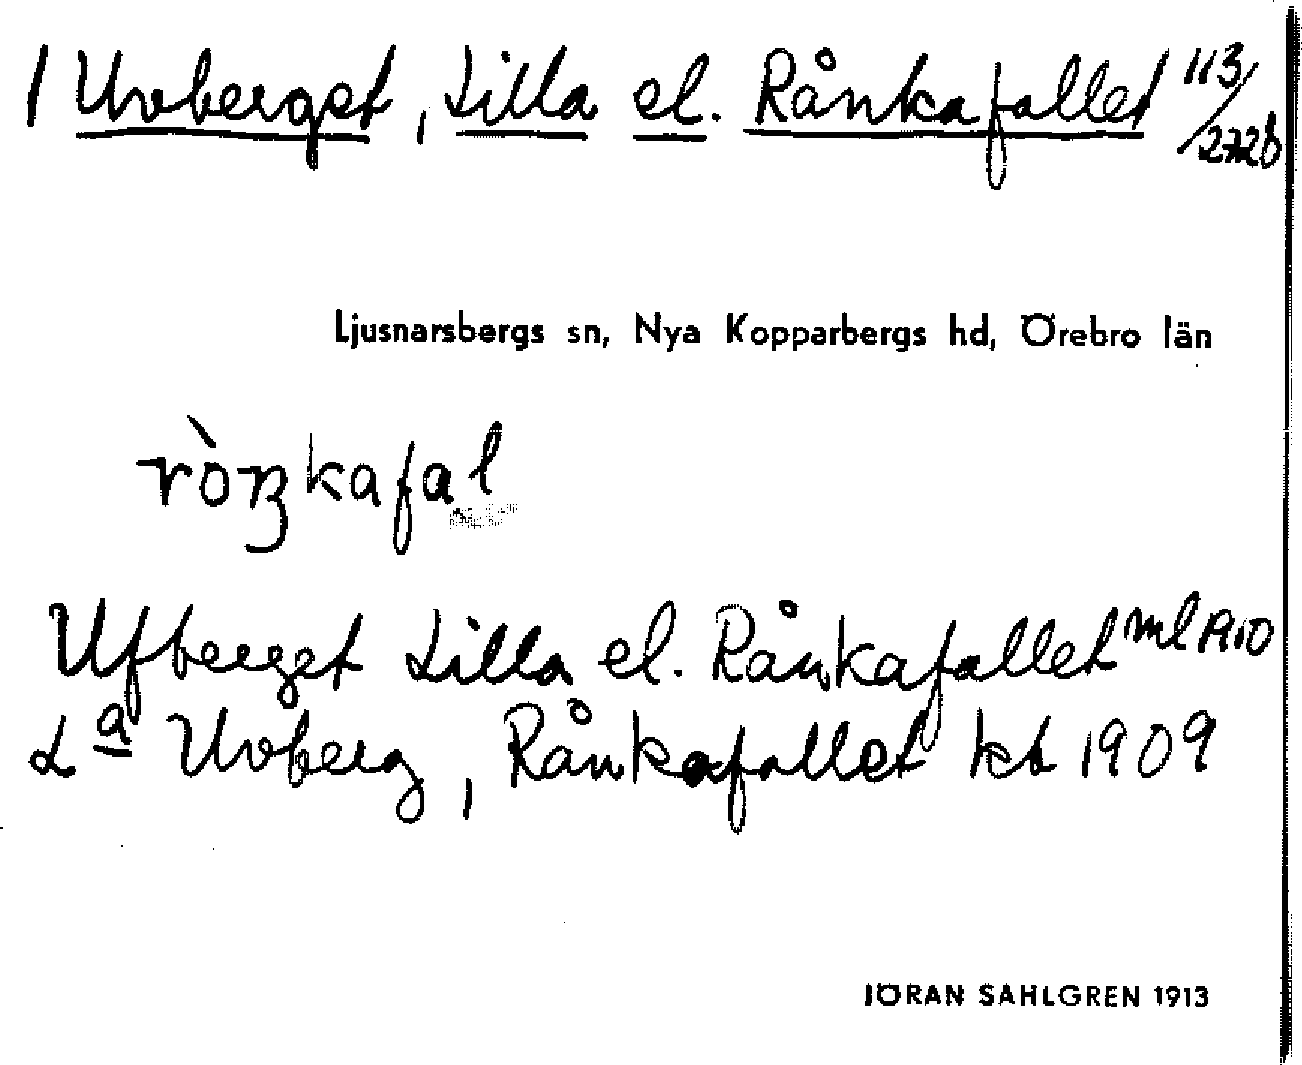 1 Uvberget, Lilla el. Rånkafallet 113/2728
Ljusnarsbergs sn, Nya Kopparbergs hd, Örebro län
Ufberget Lilla el. Rånkafallet ml 1910
Lª Uvberg, Rånkafallet kt 1909
JÖRAN SAHLGREN 1913